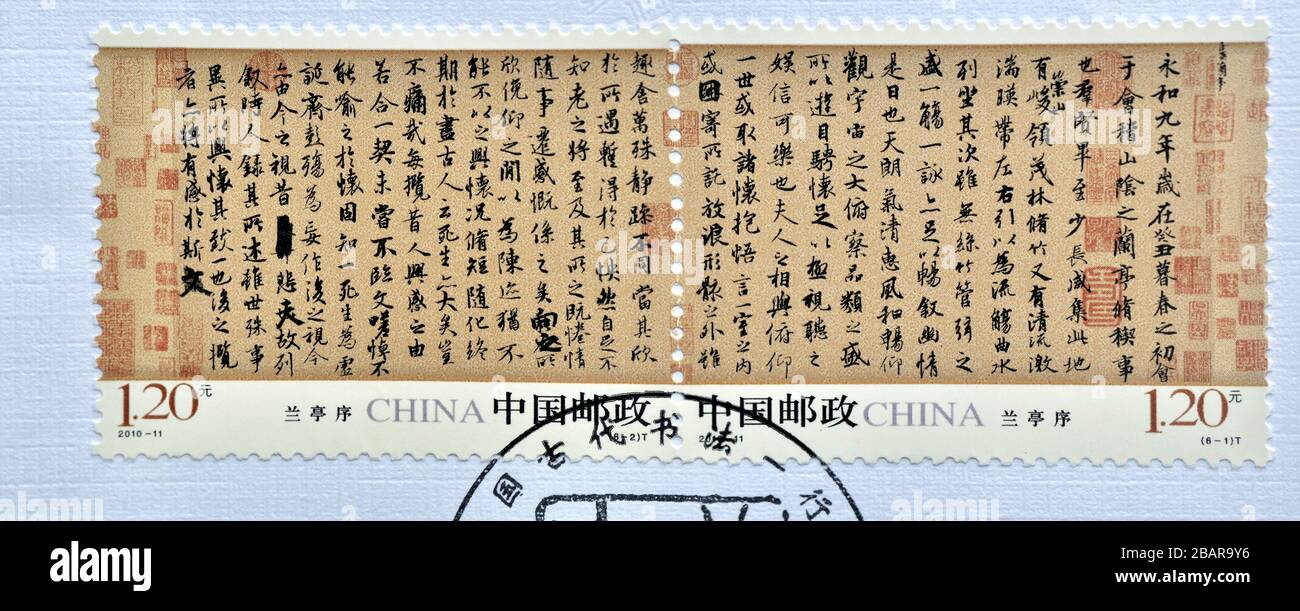 永和九年歲在癸丑暮春之初會
于會稽山陰之蘭亭脩稧事
也羣賢畢至少長咸集此地
有崇山峻領茂林脩竹又有清流激
湍暎帶左右引以為流觴曲水
列坐其次雖無絲竹管弦之
盛一觴一詠亦足以暢敘幽情
是日也天朗氣清惠風和暢仰
觀宇宙之大俯察品類之盛
所以遊目騁懷足以極視聽之
娛信可樂也夫人之相與俯仰
一世或取諸懷抱悟言一室之內
或因寄所託放浪形骸之外雖
趣舍萬殊靜躁不同當其欣
於所遇暫得於己怏然自足不
知老之將至及其所之既惓情
隨事遷感慨係之矣向之所
欣俛仰之間以為陳迹猶不
能不以之興懷況脩短隨化終
期於盡古人云死生亦大矣豈
不痛哉每攬昔人興感之由
若合一契未嘗不臨文嗟悼不
能喻之於懷固知一死生為虛
誕齊彭殤為妄作後之視今
亦由今之視昔悲夫故列
敘時人錄其所述雖世殊事
異所以興懷其致一也後之攬
者亦將有感於斯文
1.20元 兰亭序 CHINA 中国邮政 中国邮政 CHINA 兰亭序 1.20元
2010-11 (6-2)T (6-1)T
国古代书法一行
a alamy
Image ID: 2BAR9Y6
www.alamy.com